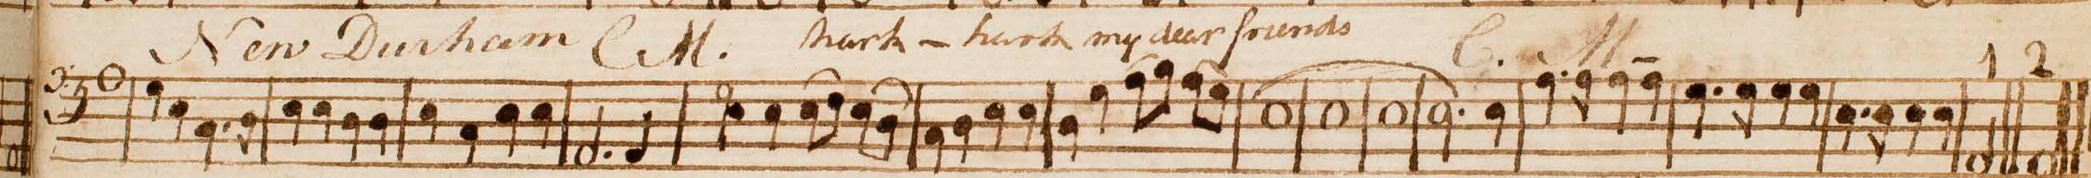 New Durham C M. hark - hark my dear friends C. M -
1 2